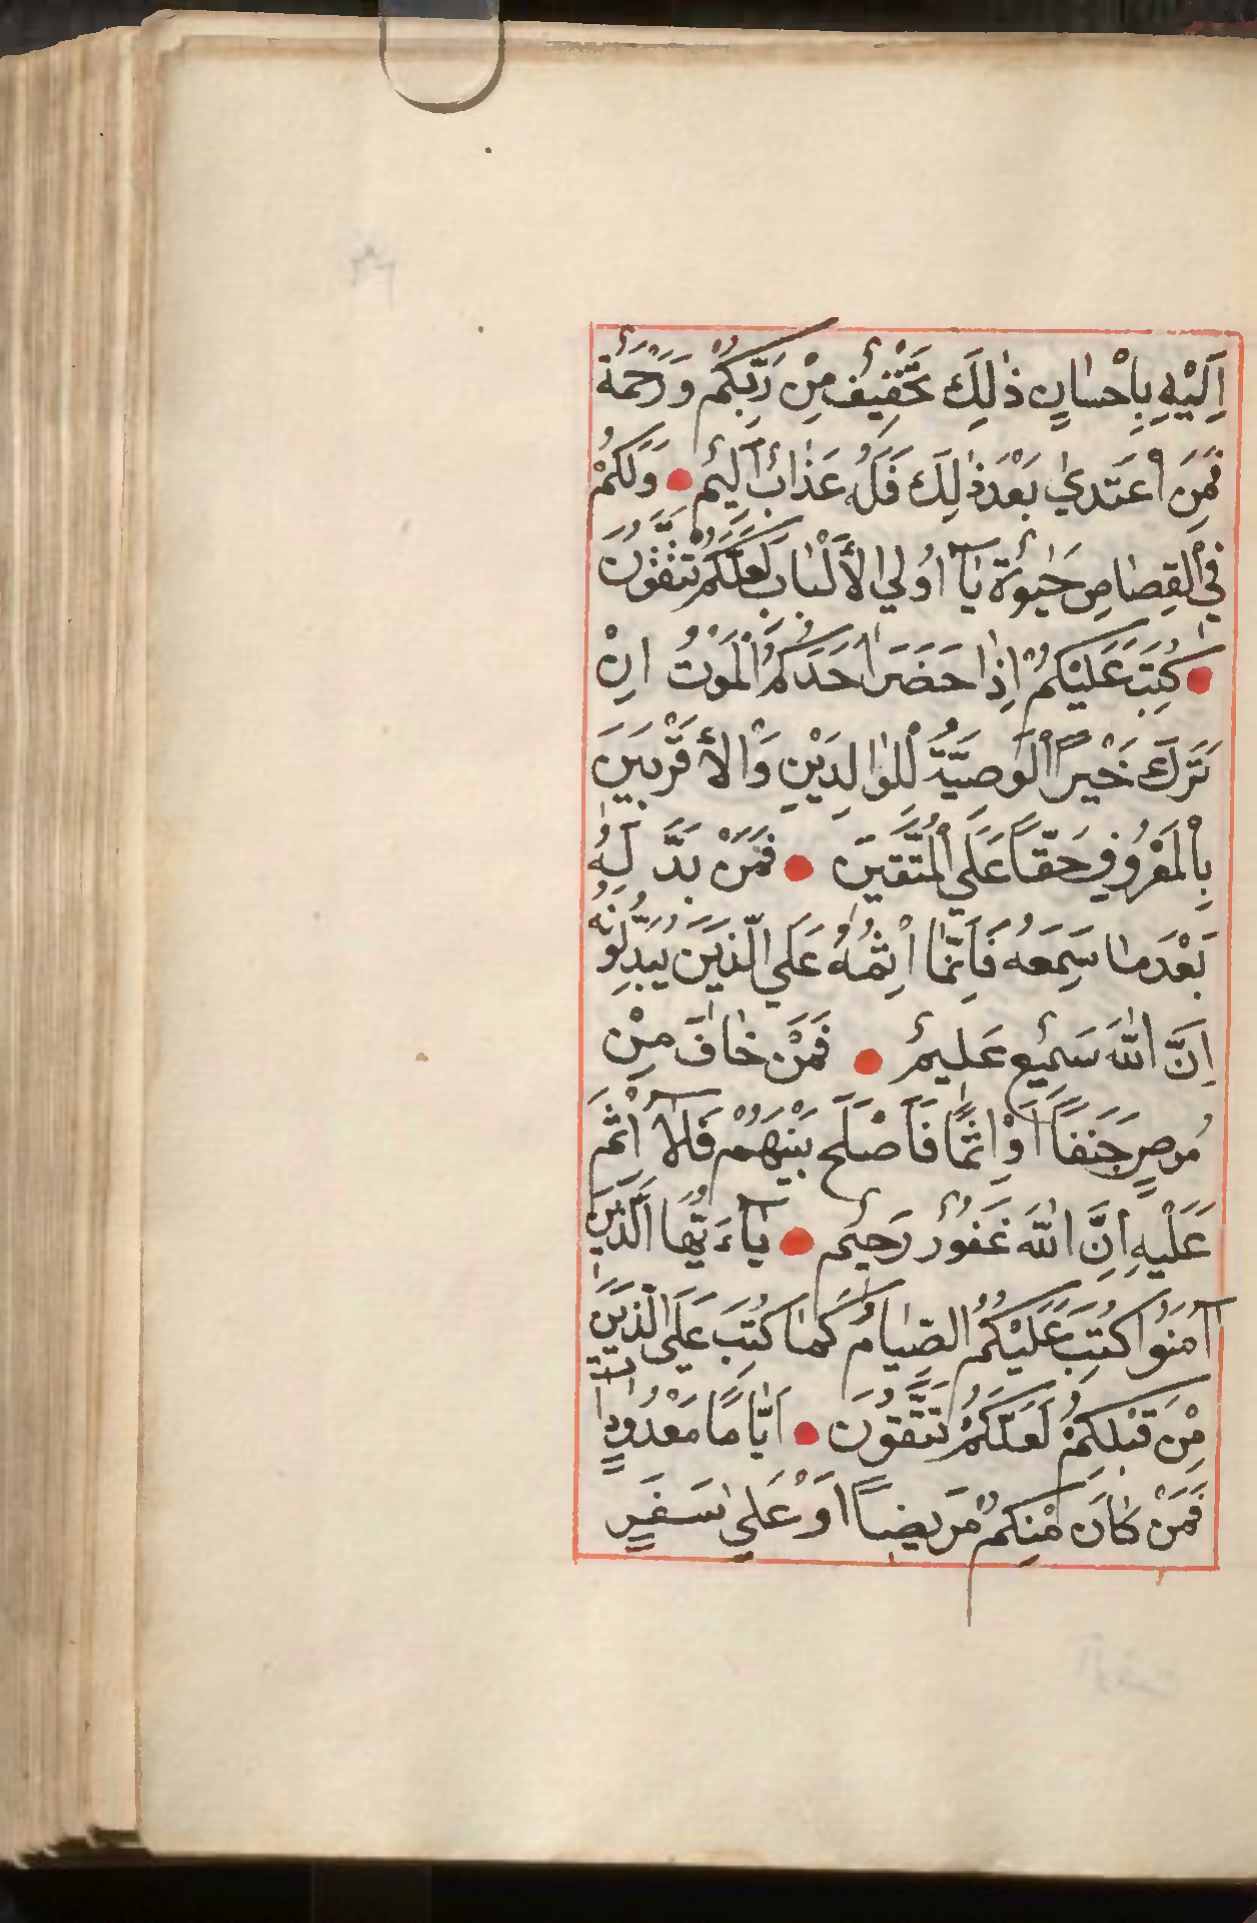 اِلَيْهِ بِاِحْسٰانٍ ذٰلِكَ تَخْفِيفٌ مِنْ رَبِّكُمْ وَرَحْمَةٌ
فَمَنِ اعْتَدىٰ بَعْدَ ذٰلِكَ فَلَهُ عَذٰابٌ اَلِيمٌ ● وَلَكُمْ
فِي الْقِصٰاصِ حَيٰوةٌ يٰآ اُولِي الْأَلْبٰابِ لَعَلَّكُمْ تَتَّقُونَ
● كُتِبَ عَلَيْكُمْ اِذٰا حَضَرَ اَحَدَكُمُ الْمَوْتُ اِنْ
تَرَكَ خَيْراً الْوَصِيَّةُ لِلْوٰالِدَيْنِ وَالْأَقْرَبِينَ
بِالْمَعْرُوفِ حَقّاً عَلَي الْمُتَّقِينَ ● فَمَنْ بَدَّلَهُ
بَعْدَ مٰا سَمِعَهُ فَاِنَّمٰا اِثْمُهُ عَلَي الَّذِينَ يُبَدِّلُونَهُ
اِنَّ اللّٰهَ سَمِيعٌ عَلِيمٌ ● فَمَنْ خٰافَ مِنْ
مُوصٍ جَنَفاً اَوْ اِثْماً فَاَصْلَحَ بَيْنَهُمْ فَلآ اِثْمَ
عَلَيْهِ اِنَّ اللّٰهَ غَفُورٌ رَحِيمٌ ● يٰآءَيُّهَا الَّذِينَ
آمَنُوا كُتِبَ عَلَيْكُمُ الصِّيٰامُ كَمٰا كُتِبَ عَلَي الَّذِينَ
مِنْ قَبْلِكُمْ لَعَلَّكُمْ تَتَّقُونَ ● اَيّٰاماً مَعْدُودٰاتٍ
فَمَنْ كٰانَ مِنْكُمْ مَرِيضاً اَوْ عَلىٰ سَفَرٍ